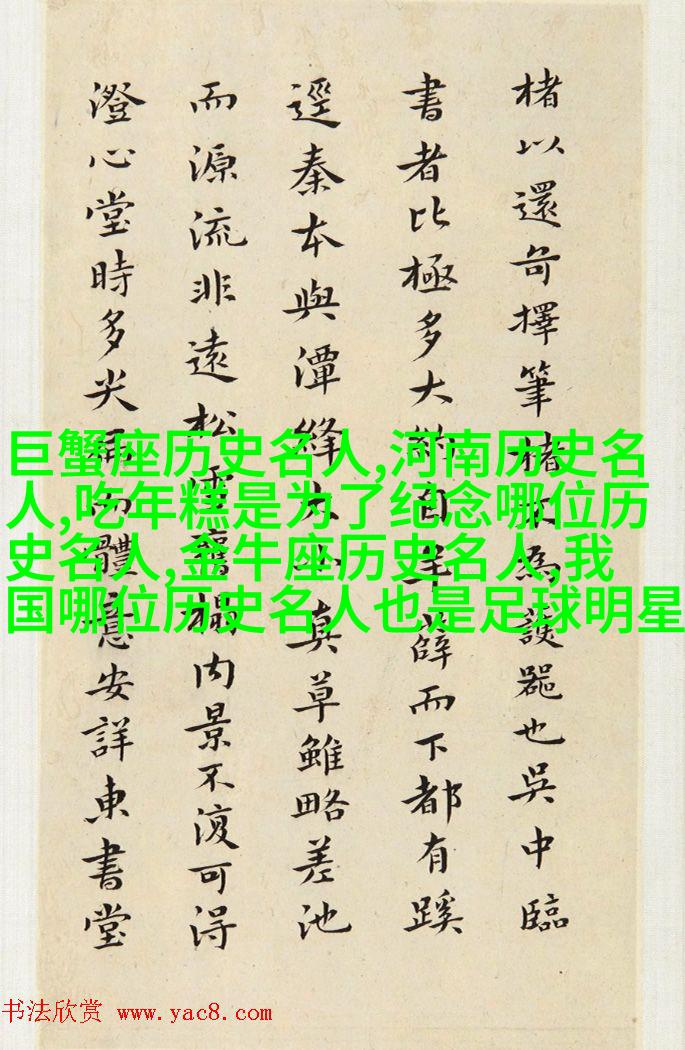 楮以還擇筆楮為護器也吳中臨
書者比極多大約自羊薛而下都有蹊
逕秦本與潭絳大小真草雖略差池
而源流非遠松雪舊榻内景不復可得
澄心堂時多尖而體意安詳東書堂
巨蟹座历史名人,河南历史名
人,吃年糕是为了纪念哪位历
史名人,金牛座历史名人,我
国哪位历史名人也是足球明星
书法欣赏 www.yac8.com